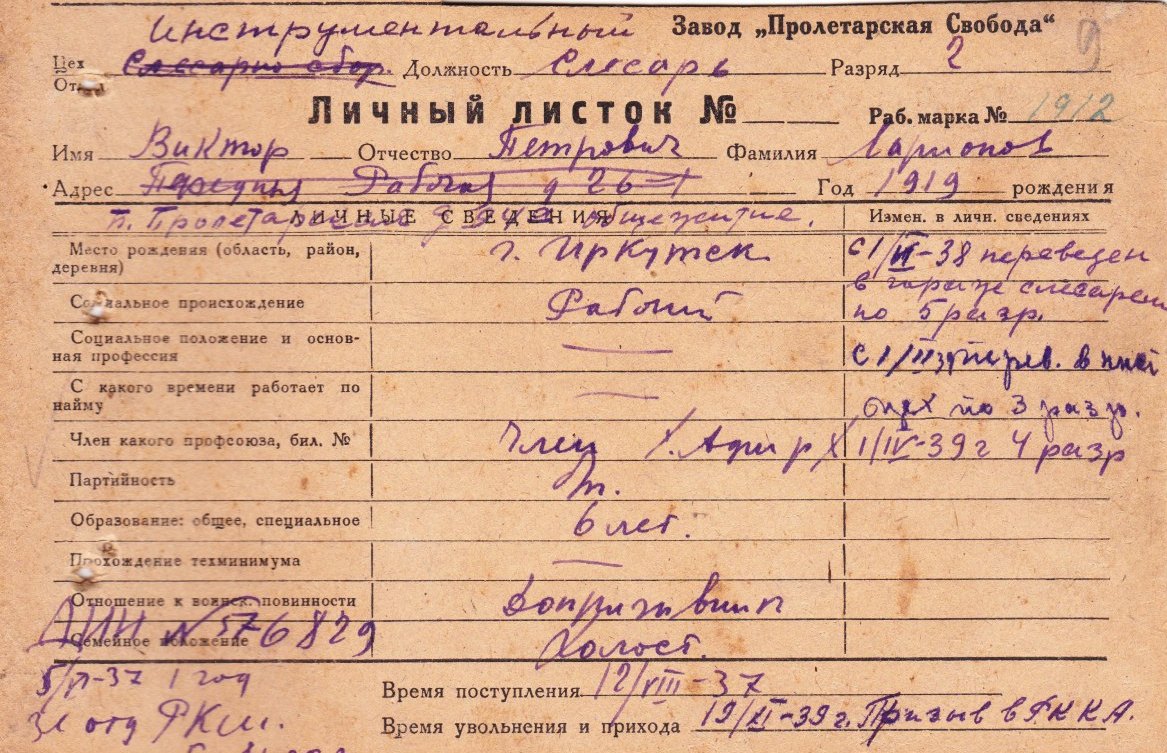 Инструментальный Завод „Пролетарская Свобода“ 9
Цех Слесарно сбор. Должность Слесарь Разряд 2
Отдел
Личный листок №
Раб. марка № 1912
Имя Виктор Отчество Петрович Фамилия Ларионов
Адрес Рабочая д 26-1 Год 1919 рождения
ЛИЧНЫЕ СВЕДЕНИЯ Измен. в личн. сведениях
п. Пролетарская общежитие.
Место рождения (область, район, деревня) г. Иркутск
с 1/VI-38 переведен
в гараж слесарем
по 5 разр.
Социальное происхождение Рабочий
Социальное положение и основная профессия —
с 1/III 39 перев. в
С какого времени работает по найму —
цех по 3 разр.
Член какого профсоюза, бил. № Член 1/IV-39 г 4 разр
Партийность
Образование: общее, специальное 6 лет.
Прохождение техминимума —
Отношение к воинск. повинности Допризывник
№ 576829
Семейное положение Холост.
5/VI-37 1 год
Время поступления 12/VIII-37
31 отд РКМ.
Время увольнения и прихода 19/XI-39 г. Призыв в РККА.